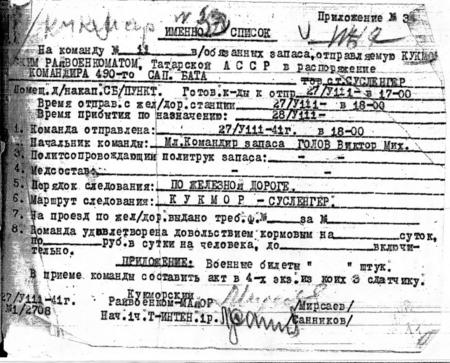 Приложение № 3
ИМЕННОЙ СПИСОК
На команду № 11 в/обязанных запаса, отправляемую КУКМОР-
СКИМ РАЙВОЕНКОМАТОМ, Татарской А С С Р в распоряжение
КОМАНДИРА 490-го САП. БАТА
гор. ст. СУСЛЕНГЕР
Помещ. д/накап. СБ/ПУНКТ. Готов. к-ды к отпр. 27/У111- в 17-00
Время отправ. с жел/дор. станции 27/У111- в 18-00
Время прибытия по назначению: 28/У111-
1. Команда отправлена: 27/У111-41г. в 18-00
2. Начальник команды: Мл. Командир запаса ГОЛОВ Виктор Мих.
3. Политсопровождающий политрук запаса: - -
4. Медсостав - -
5. Порядок следования: ПО ЖЕЛЕЗНОЙ ДОРОГЕ.
6. Маршрут следования: К У К М О Р - СУСЛЕНГЕР.
7. На проезд по жел/дор. выдано треб. ф. № за №
8. Команда удовлетворена довольствием кормовым на суток,
по руб. в сутки на человека, до включи-
тельно.
ПРИЛОЖЕНИЕ: Военные билеты " " штук.
В приеме команды составить акт в 4-х экз. из коих 3 сдатчику.
Кукморский
27/У111-41г. Райвоенком-МАЙОР /Мирсаев/
№1/2708 Нач. 1ч. Т-ИНТЕН. 1р. /Санников/